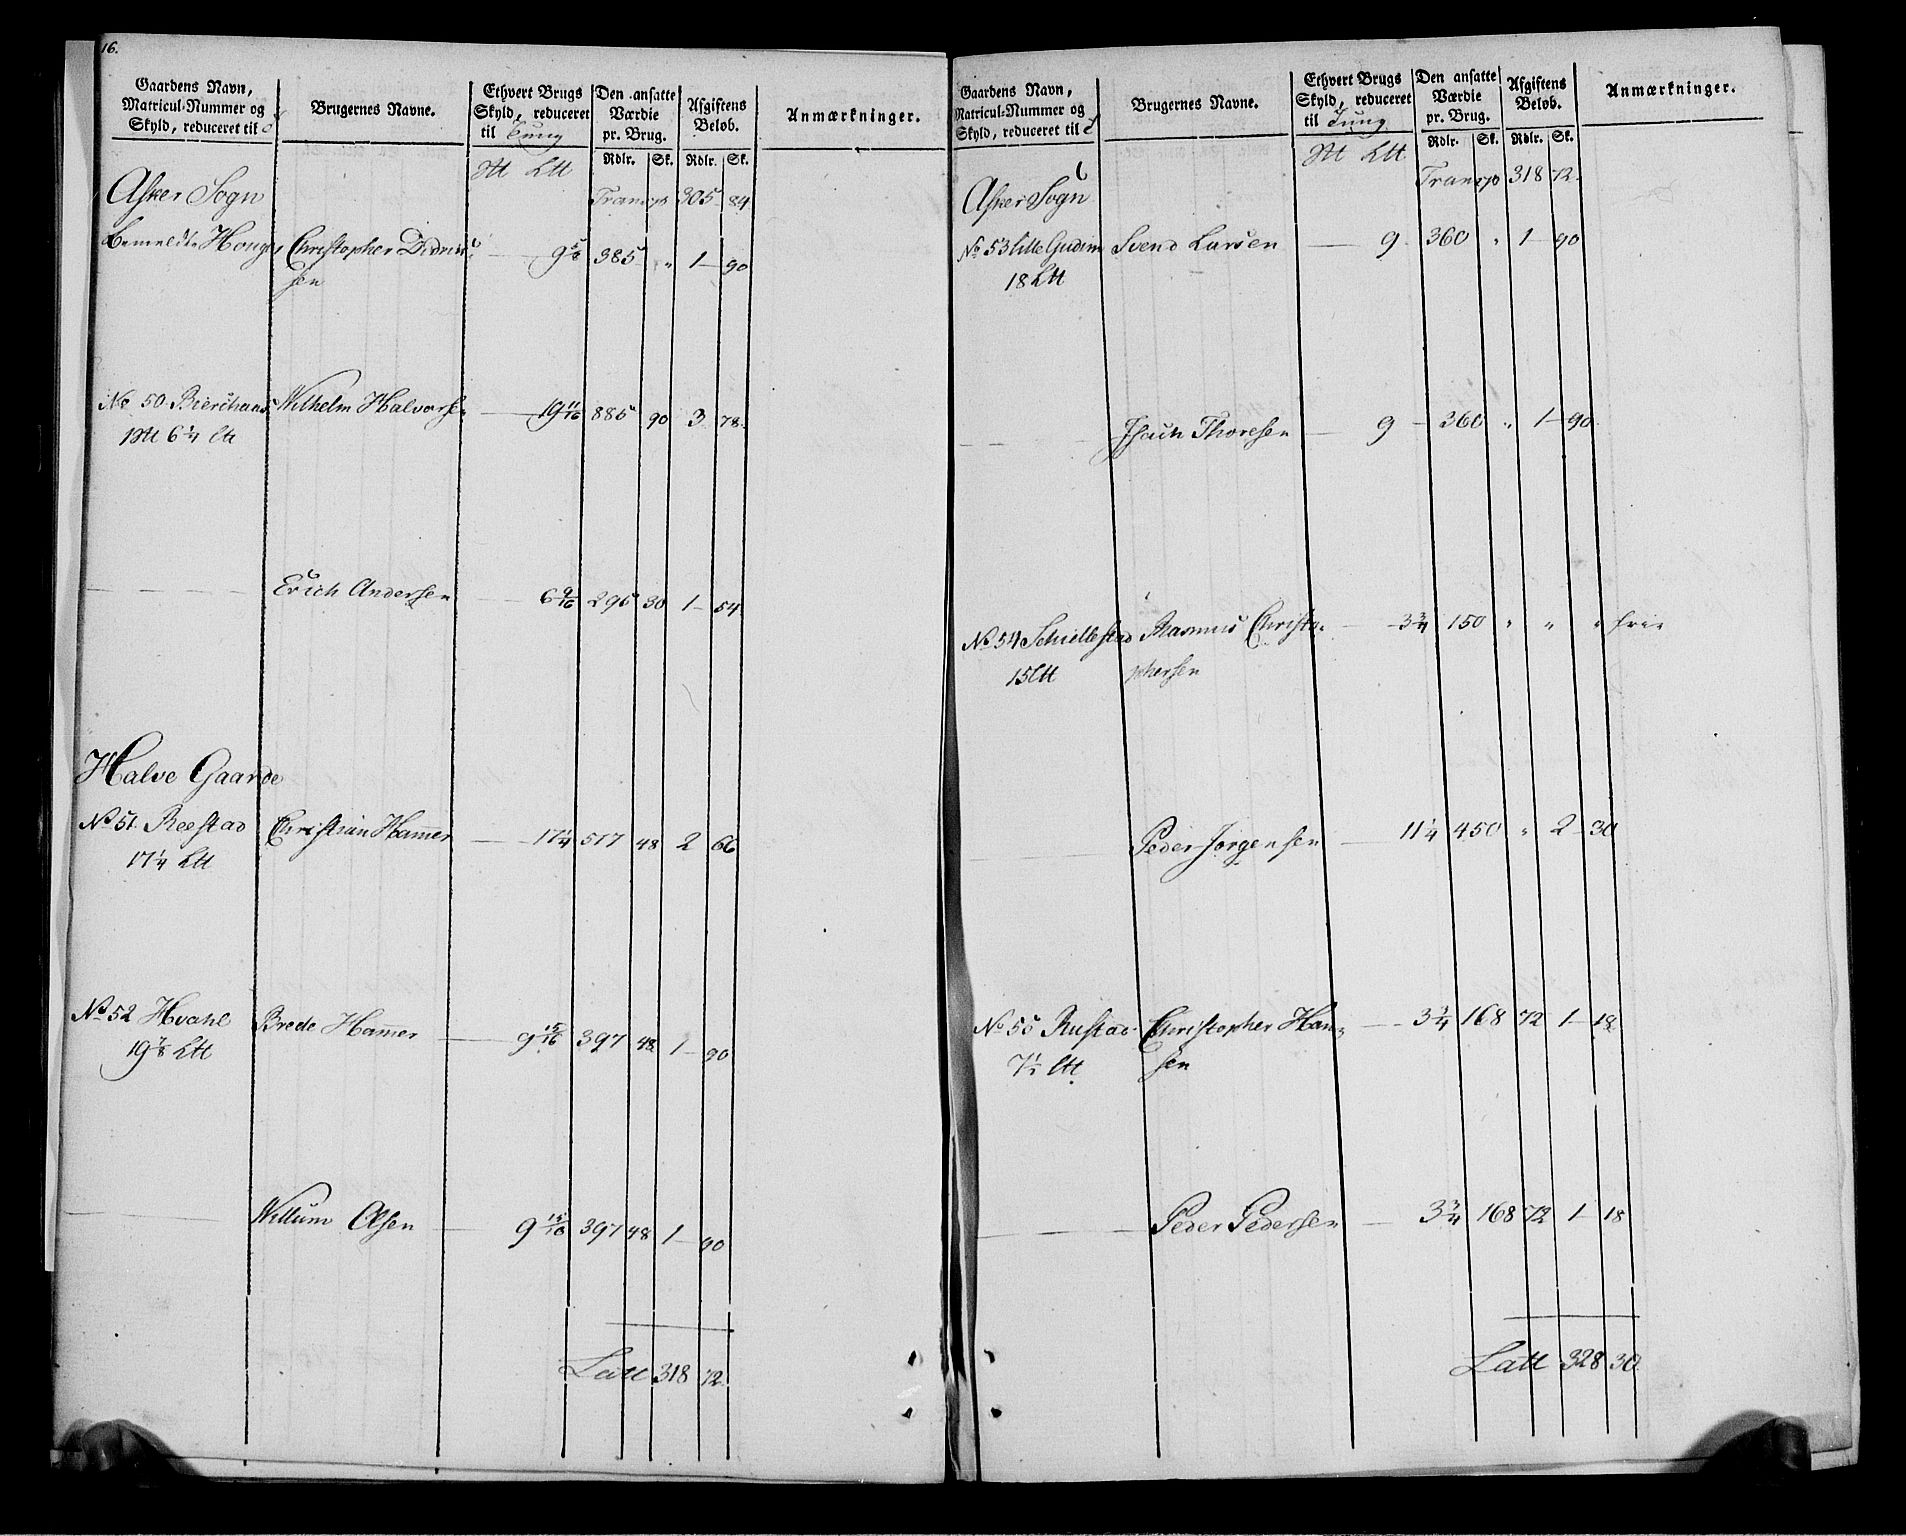 16.
Gaardens Navn,
Matricul-Nummer og
Skyld, reduceret til
Brugernes Navne.
Ethvert Brugs
Skyld, reduceret
til Tung
Den ansatte
Værdie
pr. Brug.
Afgiftens
Beløb.
Anmærkninger.
Rdlr. Sk. Rdlr. Sk.
Asker Sogn
Transp 305 84
bemeldte Christopher Didrich 9 5/8 385 " 1 90
sen
No 50 Wilhelm Halvorse 19 11/16 885 90 3 78
6 1/4
Erich Andersen 6 9/16 295 30 1 54
Halve Gaarde
No 51 Reestad Christian Hamer 17 1/4 517 48 2 66
17 1/4 Ltt
No 52 Hvahl Brede Hamer 9 15/16 397 48 1 90
19 7/8 Ltt
Willum Olsen 9 15/16 397 48 1 90
Latt 318 72
Gaardens Navn,
Matricul-Nummer og
Skyld, reduceret til
Brugernes Navne.
Ethvert Brugs
Skyld, reduceret
til Tung
Den ansatte
Værdie
pr. Brug.
Afgiftens
Beløb.
Anmærkninger.
Rdlr. Sk. Rdlr. Sk.
Asker Sogn
Transp 318 72
No 53 lille Gudim Svend Larsen 9 360 " 1 90
18 Ltt
Isach Thoresen 9 360 " 1 90
No 54 Schiellestad Rasmus Christo= 3 3/4 150 " " " frie
15 Ltt phersen
Peder Jørgensen 11 1/4 450 " 2 30
No 55 Rustad Christopher Han= 3 3/4 168 72 1 18
7 1/2 Ltt sen
Peder Pedersen 3 3/4 168 72 1 18
Latt 328 30